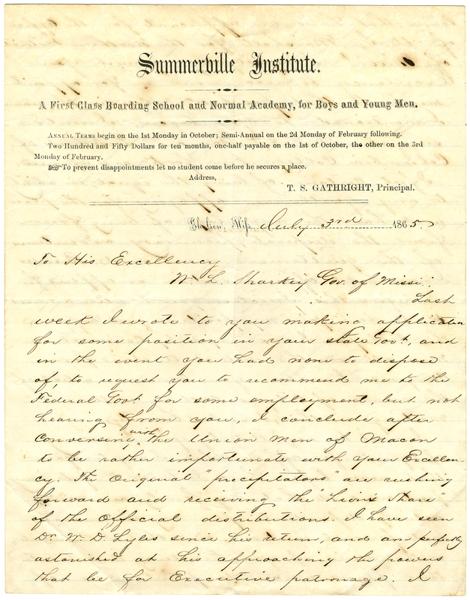 Summerville Institute.
A First Class Boarding School and Normal Academy, for Boys and Young Men.
ANNUAL TERMS begin on the 1st Monday in October; Semi-Annual on the 2d Monday of February following.
Two Hundred and Fifty Dollars for ten months, one-half payable on the 1st of October, the other on the 3rd
Monday of February.
☞ To prevent disappointments let no student come before he secures a place.
Address,
T. S. GATHRIGHT, Principal.
Miss., July 3rd 1865
To His Excellency
W L Sharkey Gov. of Missi.
Last
week I wrote to you making application
for some position in your State Govt. and
in the event you had none to dispose
of, to request you to recommend me to the
Federal Govt for some employment, but not
hearing from you, I conclude after
conversing with the Union Men of Macon
to be rather importunate with your Excellen-
cy. The original "precipitators" are rushing
forward and receiving the "lion's share"
of the official distributions. I have seen
Dr. W. D. Lyles since his return, and am perfectly
astonished at his approaching the powers
that be for Executive patronage. I